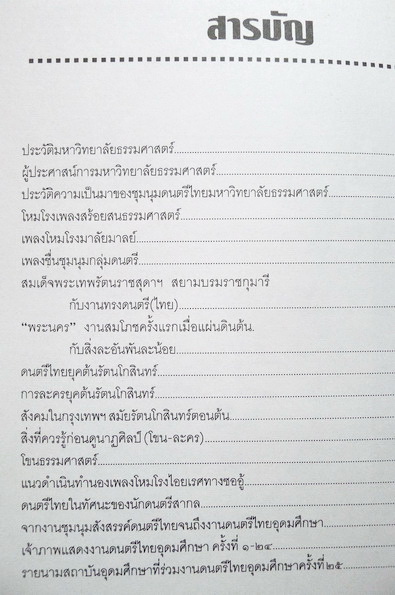 สารบัญ
ประวัติมหาวิทยาลัยธรรมศาสตร์
ผู้ประศาสน์การมหาวิทยาลัยธรรมศาสตร์
ประวัติความเป็นมาของชุมนุมดนตรีไทยมหาวิทยาลัยธรรมศาสตร์
โหมโรงเพลงสร้อยสนธรรมศาสตร์
เพลงโหมโรงมาลัยมาลย์
เพลงชื่นชุมนุมกลุ่มดนตรี
สมเด็จพระเทพรัตนราชสุดาฯ สยามบรมราชกุมารี
กับงานทรงดนตรี(ไทย)
“พระนคร” งานสมโภชครั้งแรกเมื่อแผ่นดินต้น.
กับสิ่งละอันพันละน้อย
ดนตรีไทยยุคต้นรัตนโกสินทร์
การละครยุคต้นรัตนโกสินทร์
สังคมในกรุงเทพฯ สมัยรัตนโกสินทร์ตอนต้น
สิ่งที่ควรรู้ก่อนดูนาฏศิลป์ (โขน-ละคร)
โขนธรรมศาสตร์
แนวดำเนินทำนองเพลงโหมโรงไอยเรศทางซออู้
ดนตรีไทยในทัศนะของนักดนตรีสากล
จากงานชุมนุมสังสรรค์ดนตรีไทยจนถึงงานดนตรีไทยอุดมศึกษา
เจ้าภาพแสดงงานดนตรีไทยอุดมศึกษา ครั้งที่ ๑-๒๔
รายนามสถาบันอุดมศึกษาที่ร่วมงานดนตรีไทยอุดมศึกษาครั้งที่ ๒๕